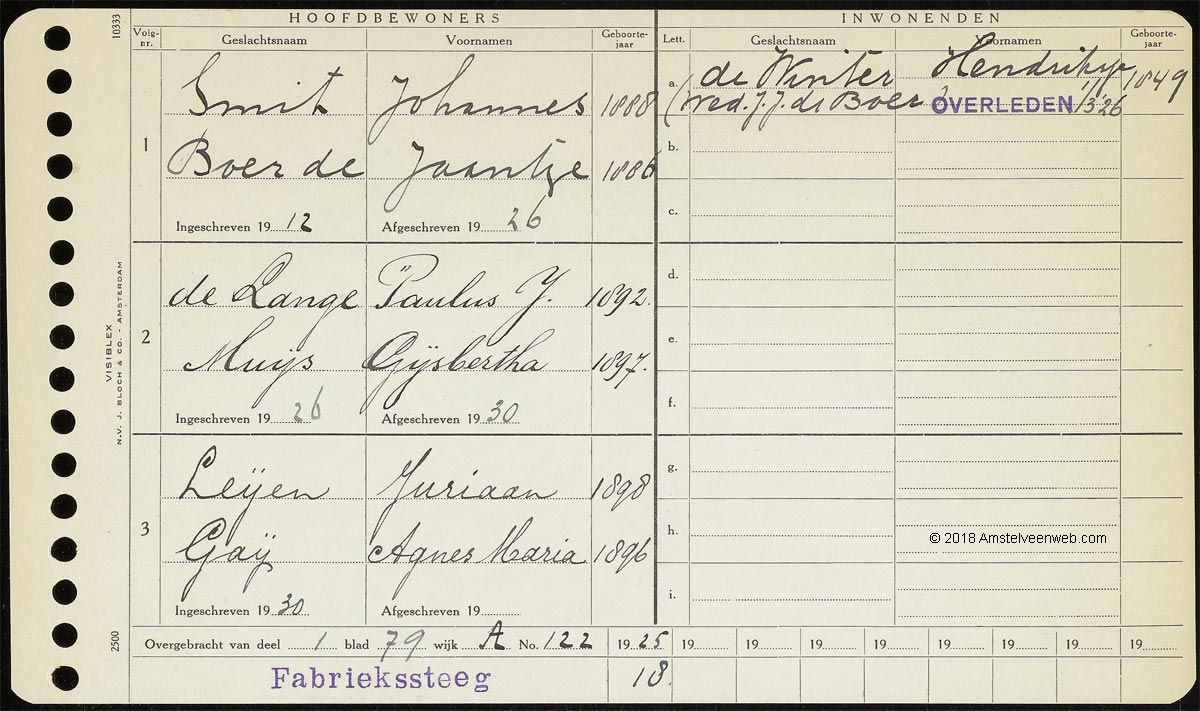 HOOFDBEWONERS
INWONENDEN
Volg-nr. Geslachtsnaam Voornamen Geboorte-jaar Lett. Geslachtsnaam Voornamen Geboorte-jaar
1
Smit Johannes 1888
Boer de Jaantje 1886
Ingeschreven 19 12 Afgeschreven 19 26
2
de Lange Paulus J. 1892.
Muijs Gijsbertha 1897.
Ingeschreven 19 26 Afgeschreven 19 30
3
Leijen Juriaan 1898
Gaij Agnes Maria 1896
Ingeschreven 19 30 Afgeschreven 19
a. de Winter Hendrikje 1849
(wed. J. J. de Boer) OVERLEDEN 1/3'26
b.
c.
d.
e.
f.
g.
h.
i.
© 2018 Amstelveenweb.com
Overgebracht van deel 1 blad 79 wijk A No. 122 19 25 19 19 19 19 19 19 19 19
Fabriekssteeg 18.
10333
VISIBLEX
N.V. J. BLOCH & CO. - AMSTERDAM
2500